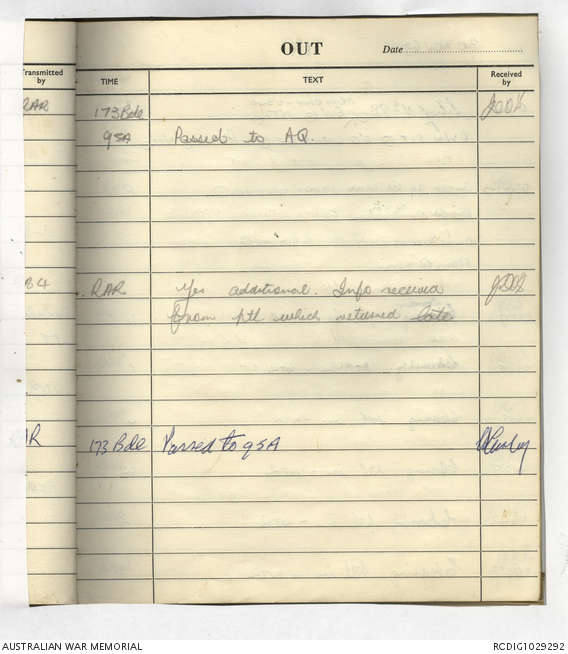 OUT Date
Transmitted by TIME TEXT Received by
RAR 173 Bde
GSA Passed to AQ.
84 RAR Yes additional. Info received
from ptl which returned late
R 173 Bde Passed to GSA
AUSTRALIAN WAR MEMORIAL RCDIG1029292